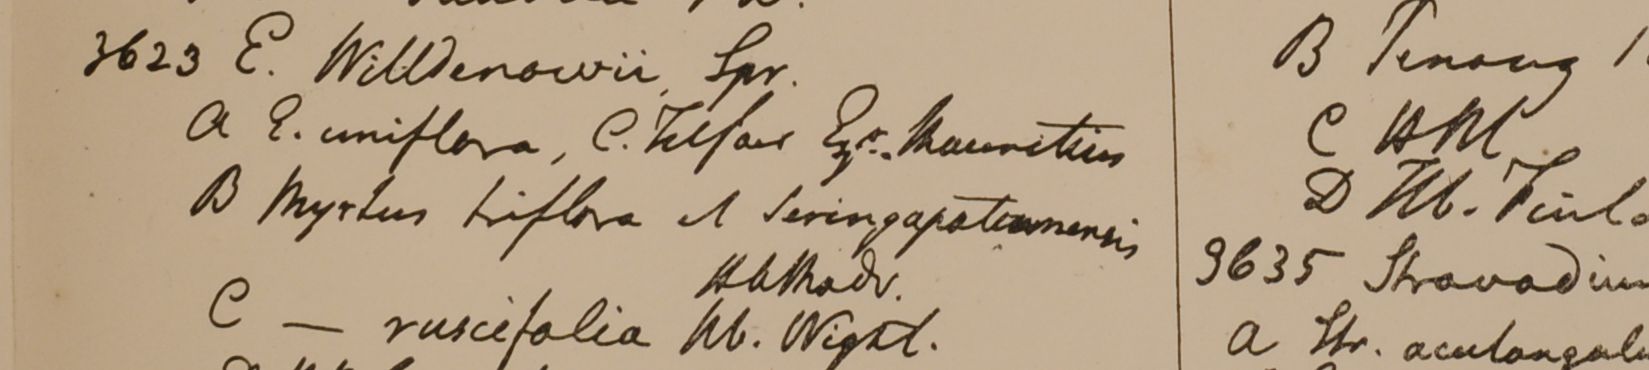 3623 E. Willdenowii, Spr.
A E. uniflora, C. Telfair Eqr. Mauritius
B Myrtus triflora et Seringapatamensis
Hb Madr.
C — ruscifolia Hb. Wight.
B Tenang
C HM
D Hb. Finl
3635 Stravadium
A Str. acutangula